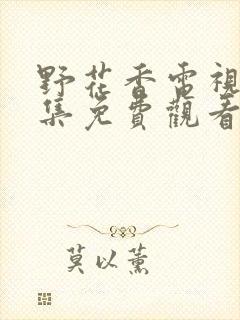 野花香電視
集免費觀看
莫以薰